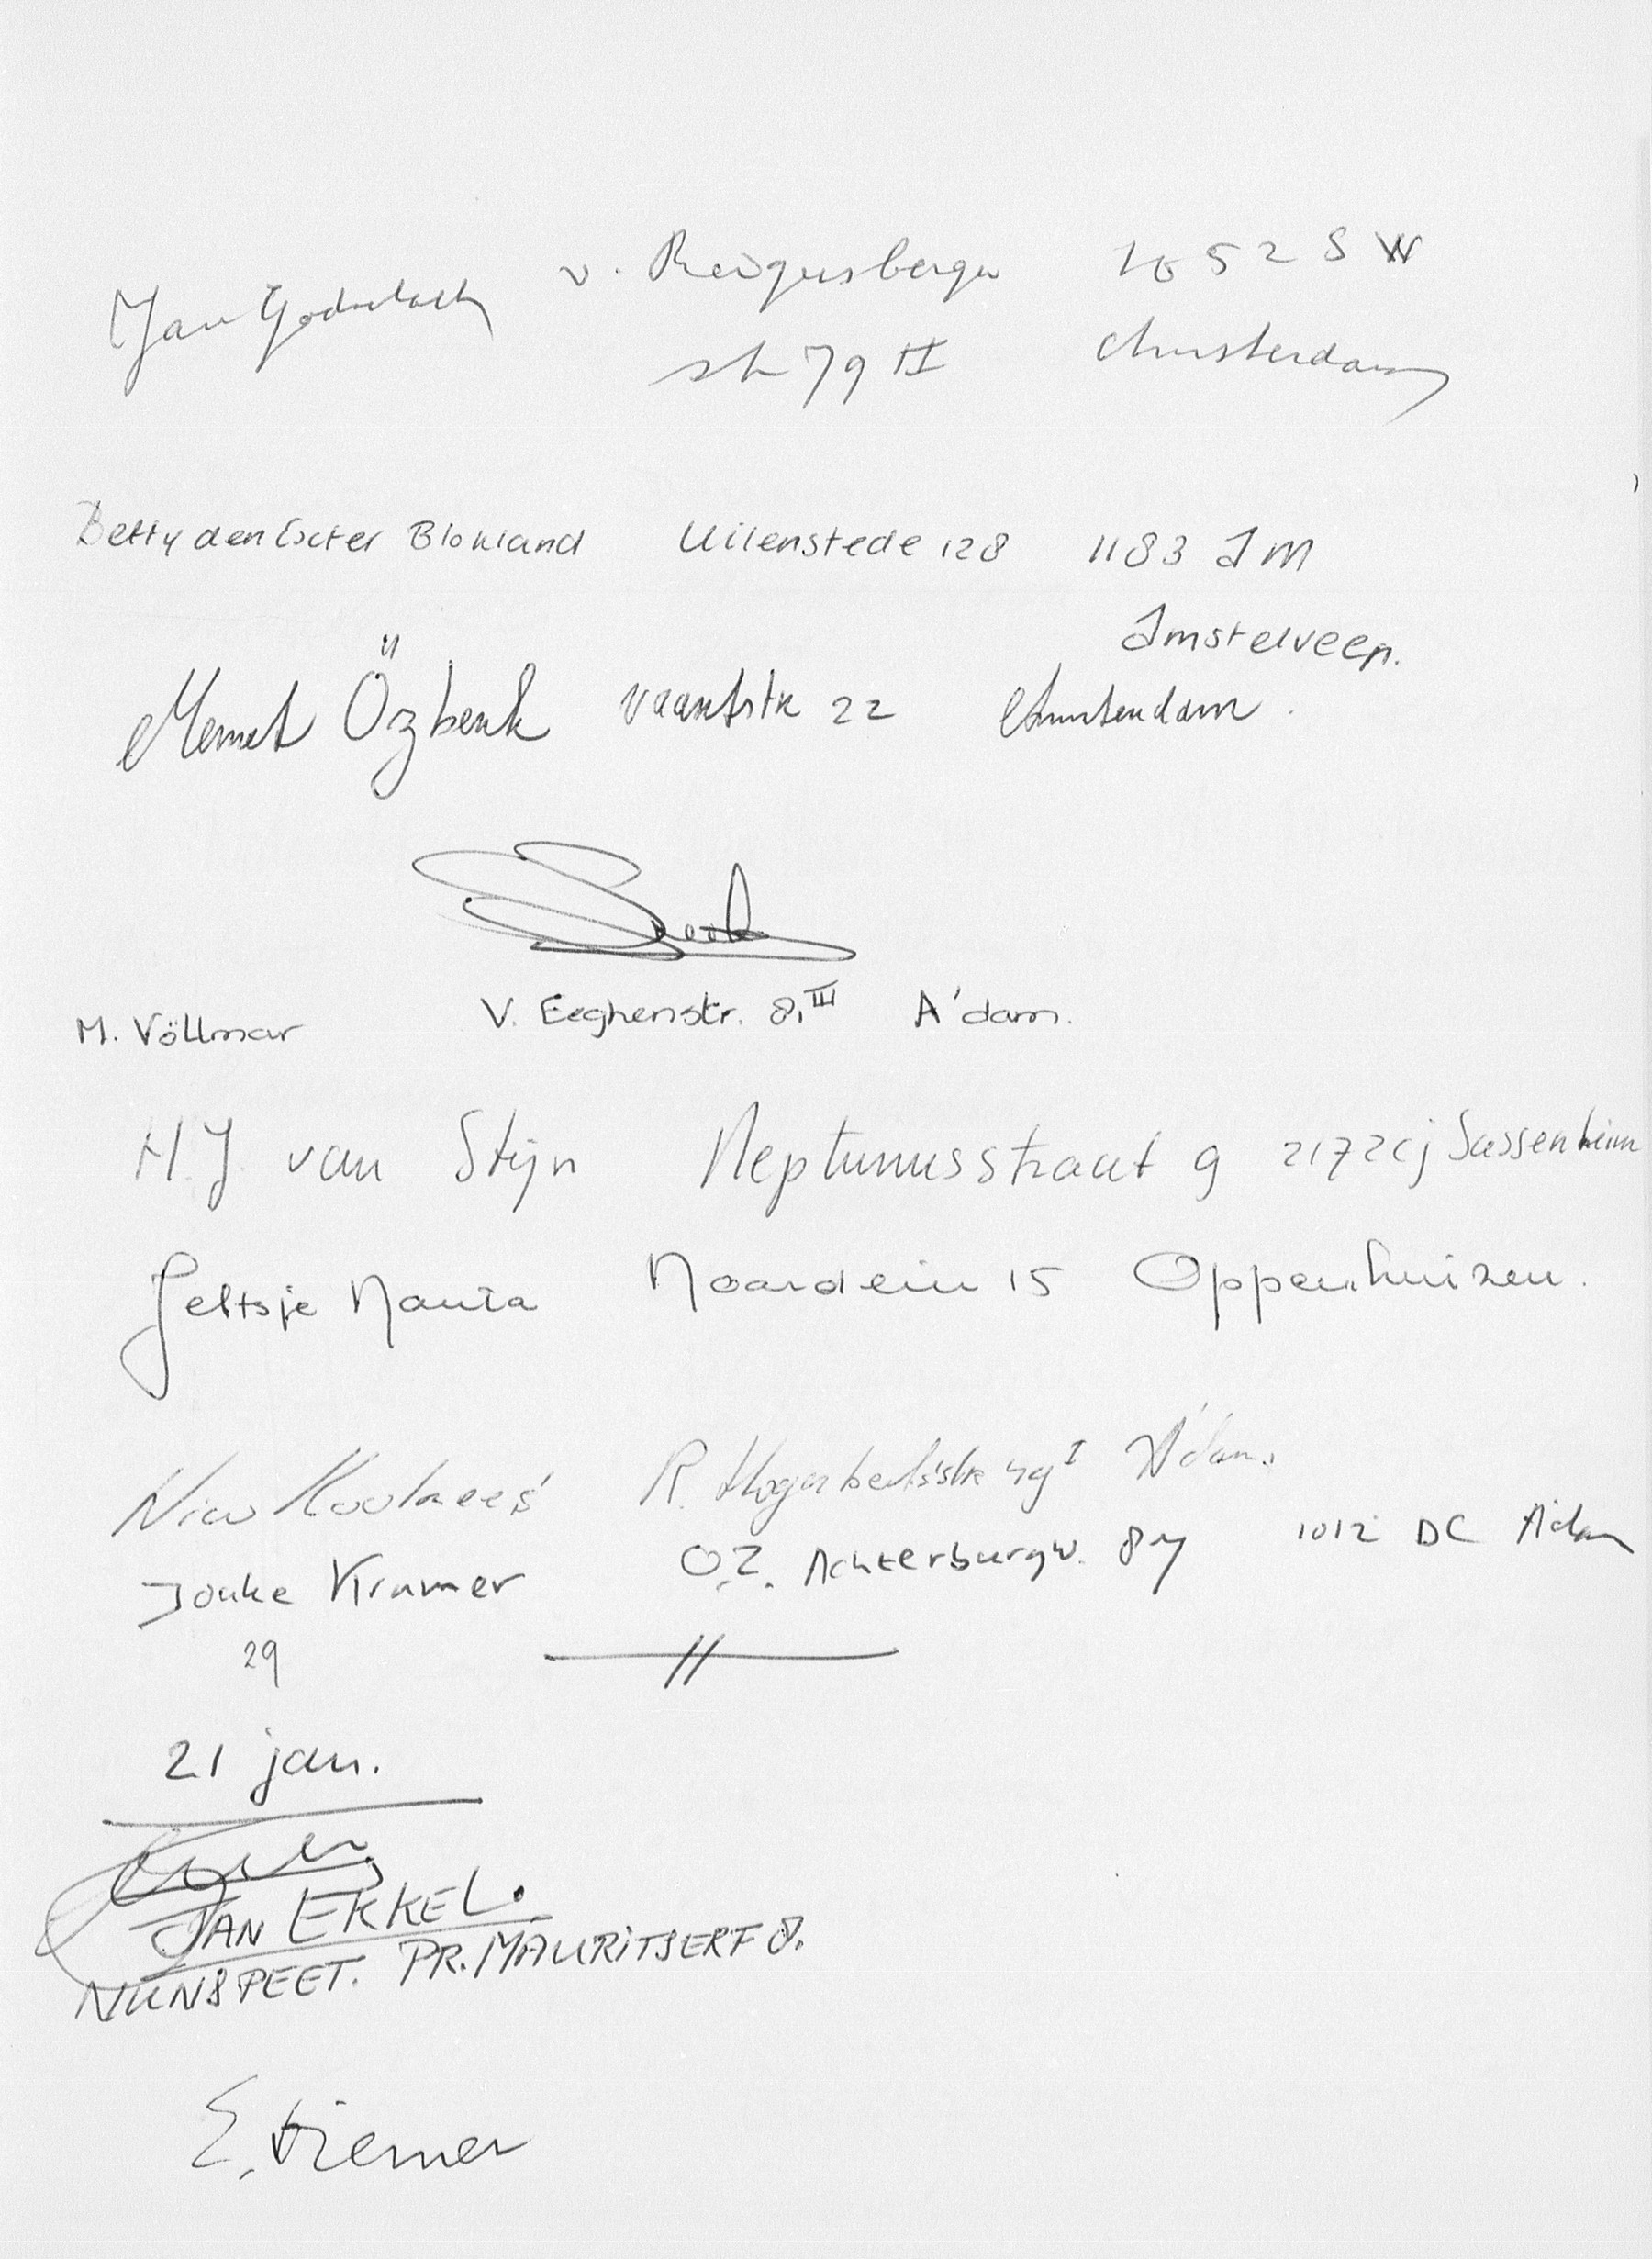 Jan v. Reigersberger 1052 SW
str 79 II Amsterdam
Betty den Exter Blokland Uilenstede 128 1183 AM
Amstelveen.
Memet Özbenk Vaartstr 22 Amsterdam.
M. Völlmar V. Eeghenstr. 81 III A'dam.
H.J. van Stijn Neptunusstraat 9 2172 cj Sassenheim
Jeltsje Nauta Noardein 15 Oppenhuizen.
Nico R. Hogerbeetsstr 49 I A'dam.
Jouke Kramer O.Z. Achterburgw. 87 1012 DC A'dam
29
21 jan.
JAN EKKEL.
NUNSPEET. PR. MAURITSERF 8.
E. Diemer